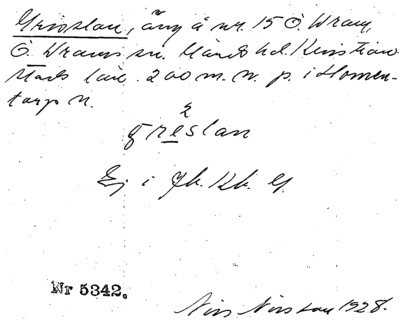 Grisslan, äng å nr. 15 Ö. Wram,
Ö. Wrams sn. Gärds hd. Kristian-
stads län. 200 m. n. p. i
torp N.
2
gre̱slan
Ej i Jb. Kb. G.
Nr 5342.
Nils Nilsson 1928.